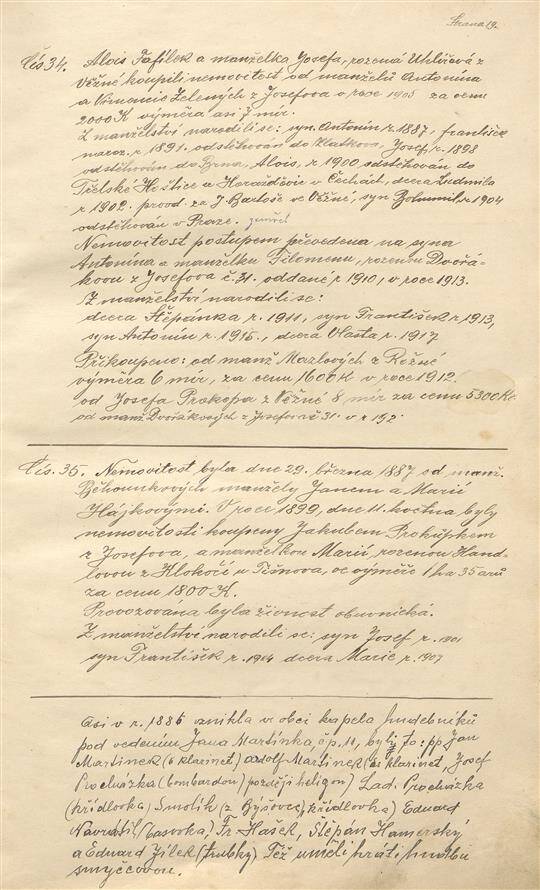 Strana 19.
Čís 34. Alois Fafílek a manželka Josefa, rozená Uhlířová z
Věžné koupili nemovitost od manželů Antonína
a Vincencie Zelených z Josefova v roce 1905 za cenu
2000 K výměra asi 7 mír.
Z manželství narodili se: syn Antonín r. 1887, František
naroz. r 1891. odstěhován do Zlatkova, Josef r. 1898
odstěhován do Brna, Alois, r. 1900 odstěhován do
Hoštice a Horažďovic v Čechách, dcera Ludmila
r 1902. provd. za J Bartoše ve Věžné, syn Bohumil r. 1904
odstěhován v Praze. zemřel
Nemovitost postupem převedena na syna
Antonína a manželku Filomenu, rozenou Dvořá-
kovu z Josefova č. 31. oddané r 1910, v roce 1913.
Z manželství narodili se:
dcera Štěpánka r. 1911, syn František r. 1913,
syn Antonín r. 1915., dcera Vlasta r. 1917
Přikoupeno: od manž Mazlových z Rožné
výměra 6 mír, za cenu 1600 K v roce 1912.
od Josefa Prokopa z Věžné 8 mír za cenu 5300 Kč
od manž Dvořákových z Josefova č 31. v r 192
Čís. 35. Nemovitost byla dne 29. března 1887 od manž.
Běhounkových manžely Janem a Marií
Hájkovými. V roce 1899, dne 11. května byly
nemovitosti koupeny Jakubem Prokůpkem
z Josefova, a manželkou Marií, rozenou Hand-
lovou z Hlokočí u Tišnova, ve výměře 1 ha 35 arů
za cenu 1800 K.
Provozována byla živnost obuvnická.
Z manželství narodili se: syn Josef r. 1901
syn František r. 1904 dcera Marie r. 1907
Asi v r. 1885 vznikla v obci kapela hudebníků
pod vedením Jana Martínka, čp. 11, byli to: pp Jan
Martinek (b klarinet) Adolf Martinek (es klarinet, Josef
Procházka (bombardon) později heligon) Lad. Procházka
(křídlovka, Smolík (z Býšovec, křídlovka) Eduard
Navrátil (basovka, Fr. Hašek, Štěpán Hamerský
a Eduard Jílek (trubky) Též uměli hráti hudbu
smyčcovou.